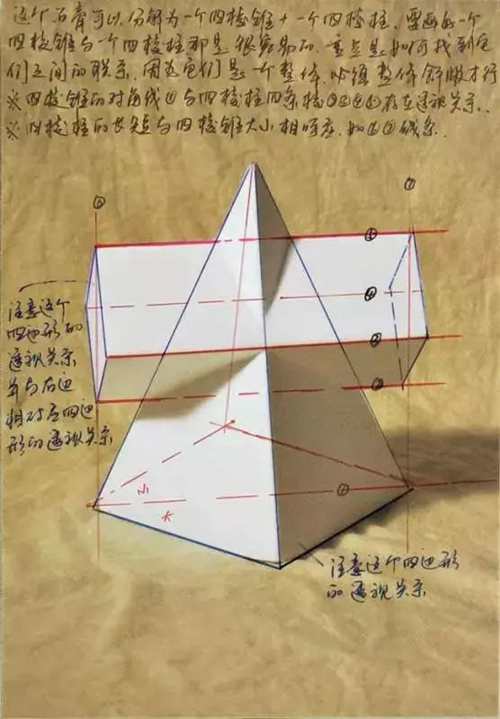 这个石膏可以分解为一个四棱锥+一个四棱柱，要画好一个
四棱锥与一个四棱柱那是很容易的，重点是如何找到它
们之间的联系，因为它们是一个整体，必须整体才行
※四棱锥的对角线①与四棱柱四条棱②③④⑤存在透视关系.
※四棱柱的长短与四棱锥大小相呼应，如⑥⑦线条.
注意这个
四边形的
透视关系
并与右边
相对应四边
形的透视关系
小
大
①
注意这个四边形
的透视关系